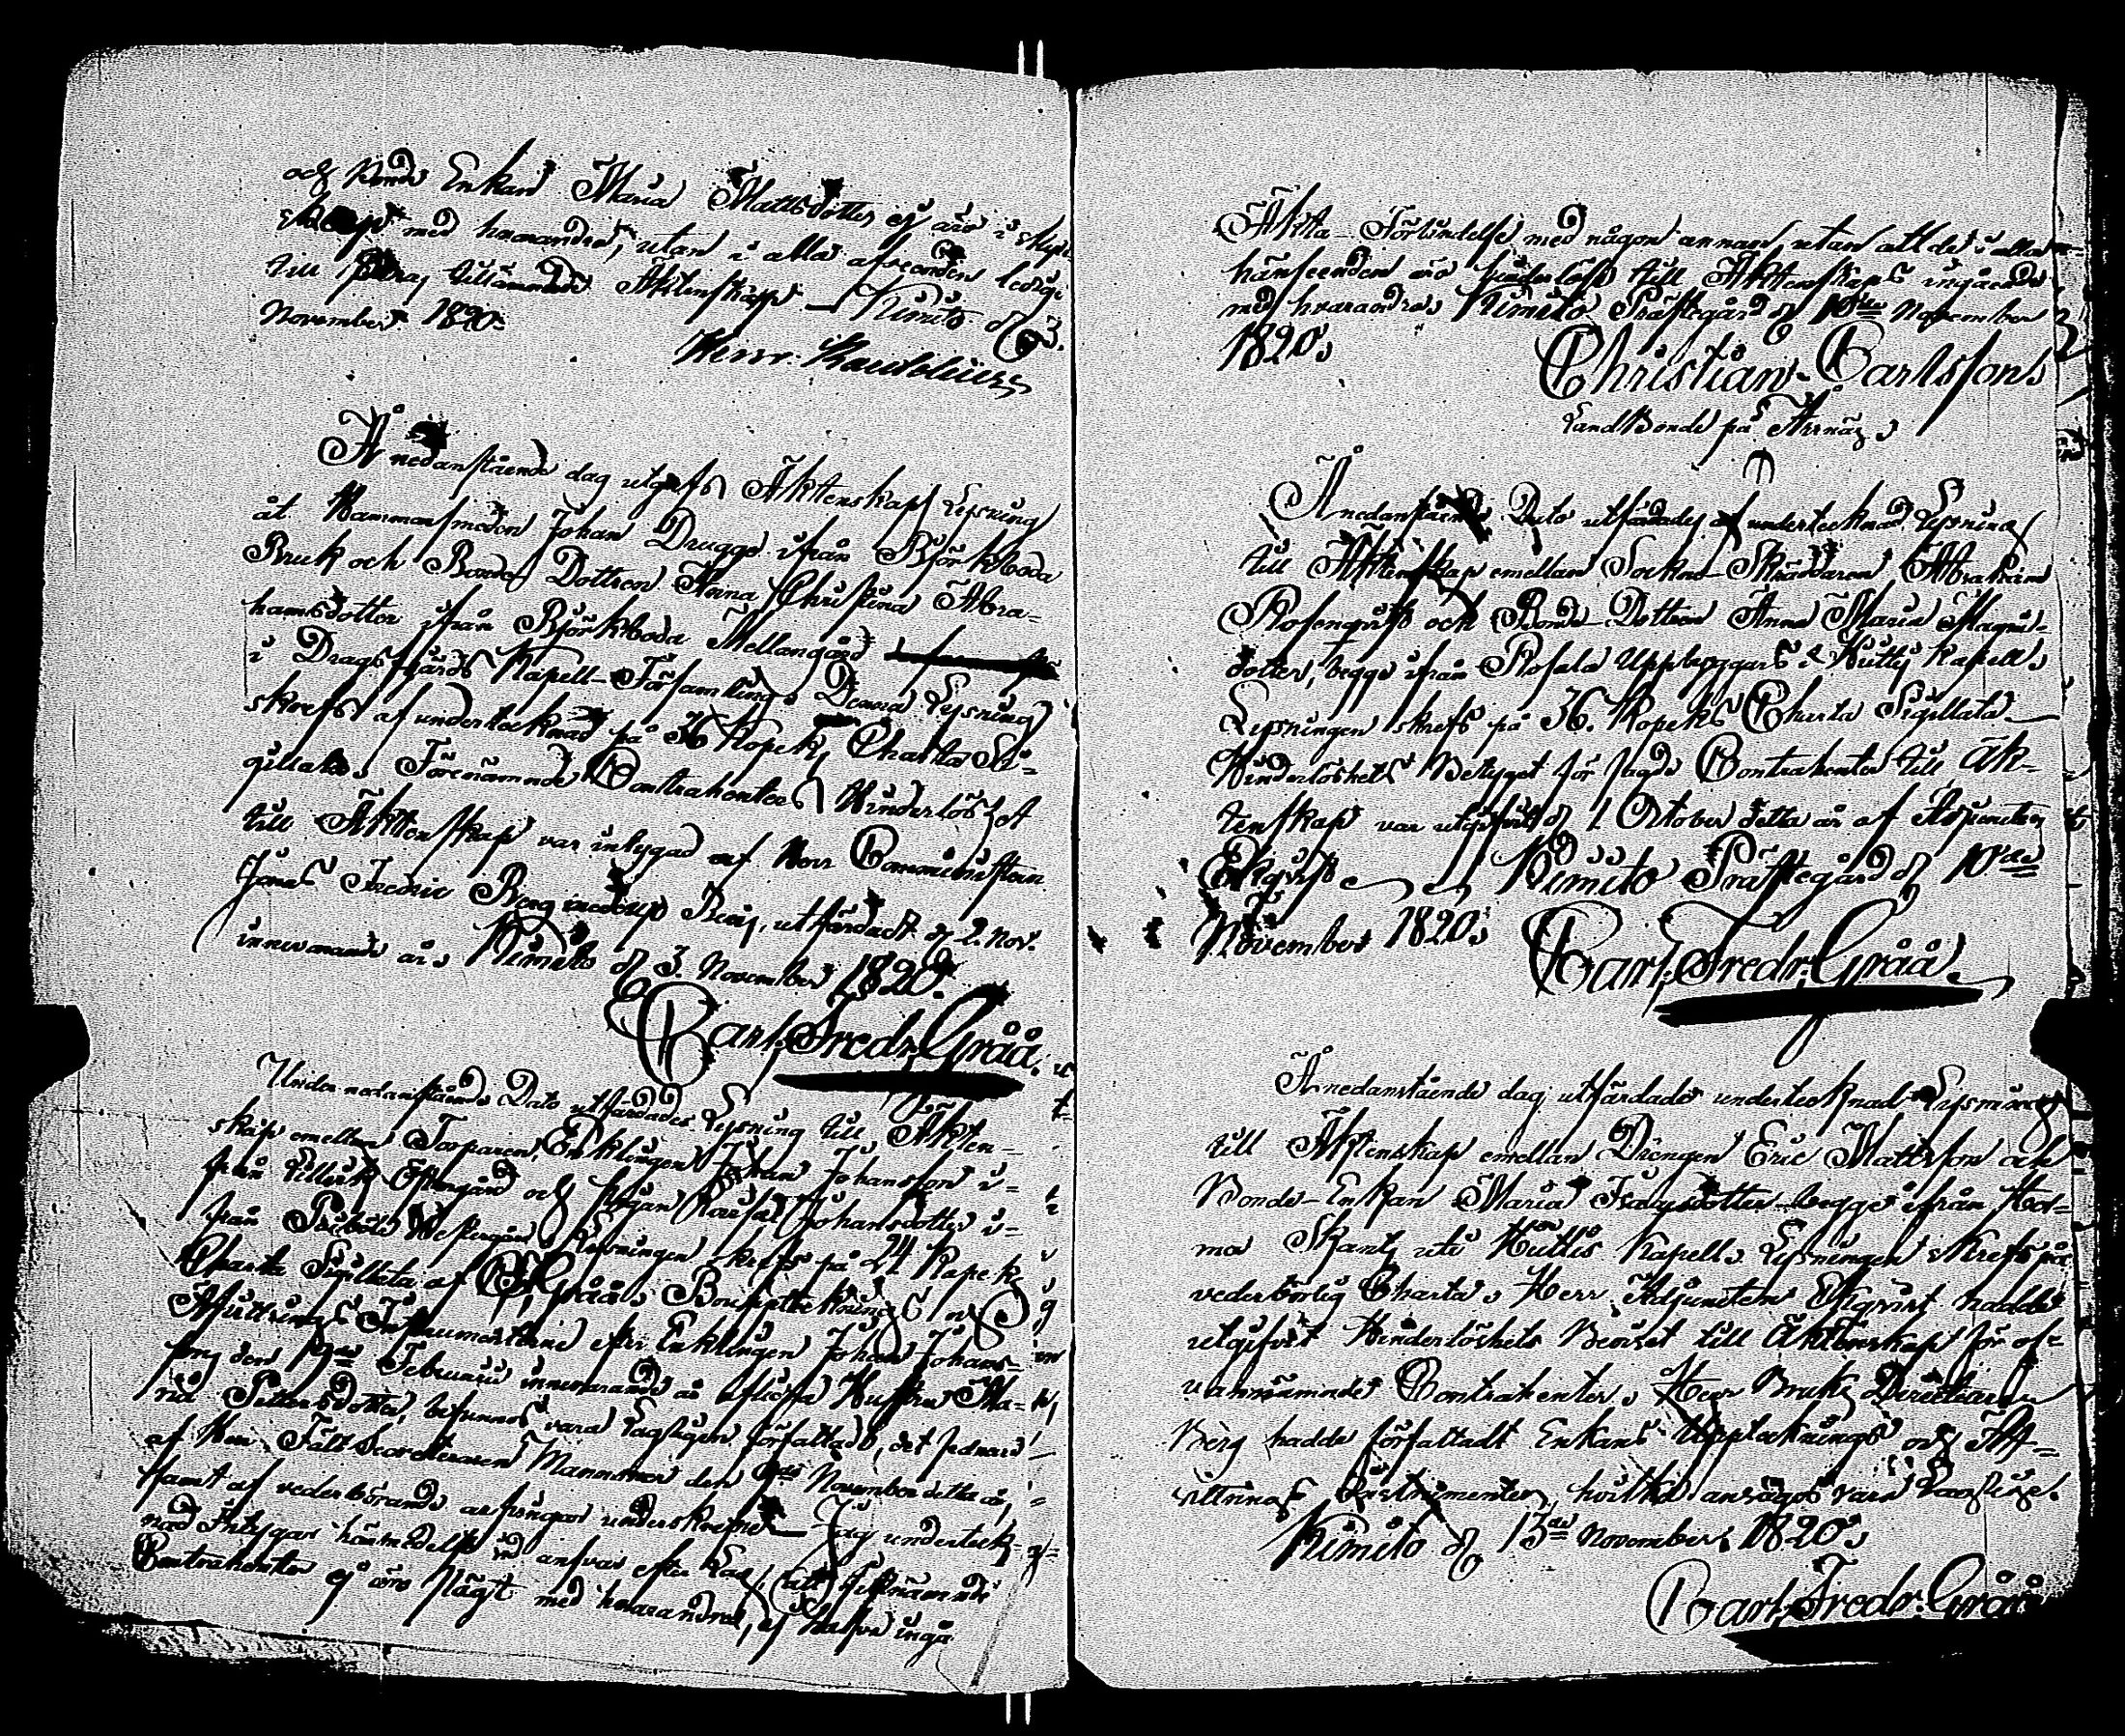 och Bonde Enkan Maria Mattsdotter ej äro i skyld-
skap med hvarandra, utan i alla afseenden ledige
till tillämnade Äktenskapp. — Kimito d 3.
November 1820.
Henr.
Å nedanstående dag utgafs Äktenskaps Lysning
åt Hammarsmeden Johan Drugge ifrån Björkboda
Bruk och Bonde Dottren Anna Christina Abra-
hamsdotter ifrån Björkboda Mellangård
i Dragsfjärds Kapell-Församling. Denna Lysning
skrefs af undertecknad på 36 Kopeks Charta Si-
gillata. Förenämnde Contrahenters Hinderlöshet
till Äktenskap var intygad af Herr Comministern
Jonas Fredric Berg med Bevis, utfärdadt d 2. Nov.
innevarande år. Kimito d 3. November 1820.
Carl Fredr. Gråå.
Under nedanstående Dato utfärdades Lysning till Äkten-
skap emellan Torparen, Enklingen Johan Johansson i-
från Östergård och Pigan Lovisa Johansdotter i-
från Westergård. Lysningen skrefs på 24 Kopeks
Charta Sigillata af Gråå. Bouppteknings och
Afvittrings Instrumenterne efter Enklingen Johan Johans-
sons den 19de Februarii innevarande år aflidna Hustru Ma-
ria befunnos vara Lagligen författade, det sednare
af Herr Fält Secreteraren den November detta år,
samt af vederbörande underskrifne — Jag underteck-
nad intygar härmedelst vid answar efter Lag, att förenämnde
Contrahenter ej äro Slägt med hvarandra, ej hafva ingå
Äkta-Förbindelse med någon annan, utan att de i alla
hänseenden äro hinderlöse till Äktenskaps ingående
med hvarandra. Kimito Prästegård d 10de November
1820.
Christian Carlsson
LandBonde på
Å nedanstående Dato utfärdades af undertecknad Lysning
till Äktenskap emellan Sockne-Skräddaren Abraham
Rosenqvist och Bonde-Dottren Anna Maria Magnus-
doter, begge ifrån Rosala Uppbyggars i Hitis Kapell.
Lysningen skrefs på 36. Kopeks Charta Sigillata
Hinderlöshets Betyget för sagde Contrahenter till Äk-
tenskap var utgifvit d 1 October detta år af Adjuncten
Ekqvist Kimito Prästegård d 10de
November 1820.
Carl Fredr. Gråå.
Å nedanstående dag utfärdade undertecknad Lysning
till Äktenskap emellan Drengen Eric Mattsson och
Bonde-Enkan Maria Isacsdotter begge ifrån Hol-
ma uti Hittis Kapell. Lysningen skrefs på
vederbörlig Charta. Herr Adjuncten Ekqvist hadde
utgifvit Hinderlöshets Beviset till Äktenskap för of-
vannämnde Contrahenter. Herr Bruks Directeuren
Berg hadde författadt Enkans Upptecknings och Af-
vittrings Instrumenter, hvilka ansågos vara Laglige.
Kimito d 13de November 1820.
Carl Fredr. Gråå